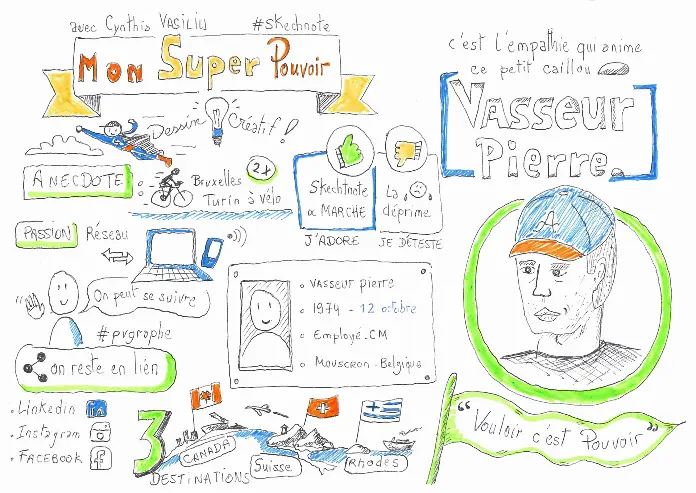 avec Cynthia VASILIU #skechnote
Mon Super Pouvoir
Dessin Créatif !
ANECDOTE :
Bruxelles
Turin à vélo
2x
Skechtnote
∝ MARCHE
J'ADORE
La
déprime
JE DÉTESTE
PASSION Réseau
On peut se suivre
#pvgraphe
on reste en lien
. Linkedin in
. Instagram
. FACEBOOK f
• VASSEUR pierre
• 1974 - 12 octobre
• Employé.CM
• Mouscron-Belgique
3
DESTINATIONS
CANADA
Suisse
Rhodes
c'est l'empathie qui anime
ce petit caillou
VASSEUR
Pierre.
A
"Vouloir c'est Pouvoir"